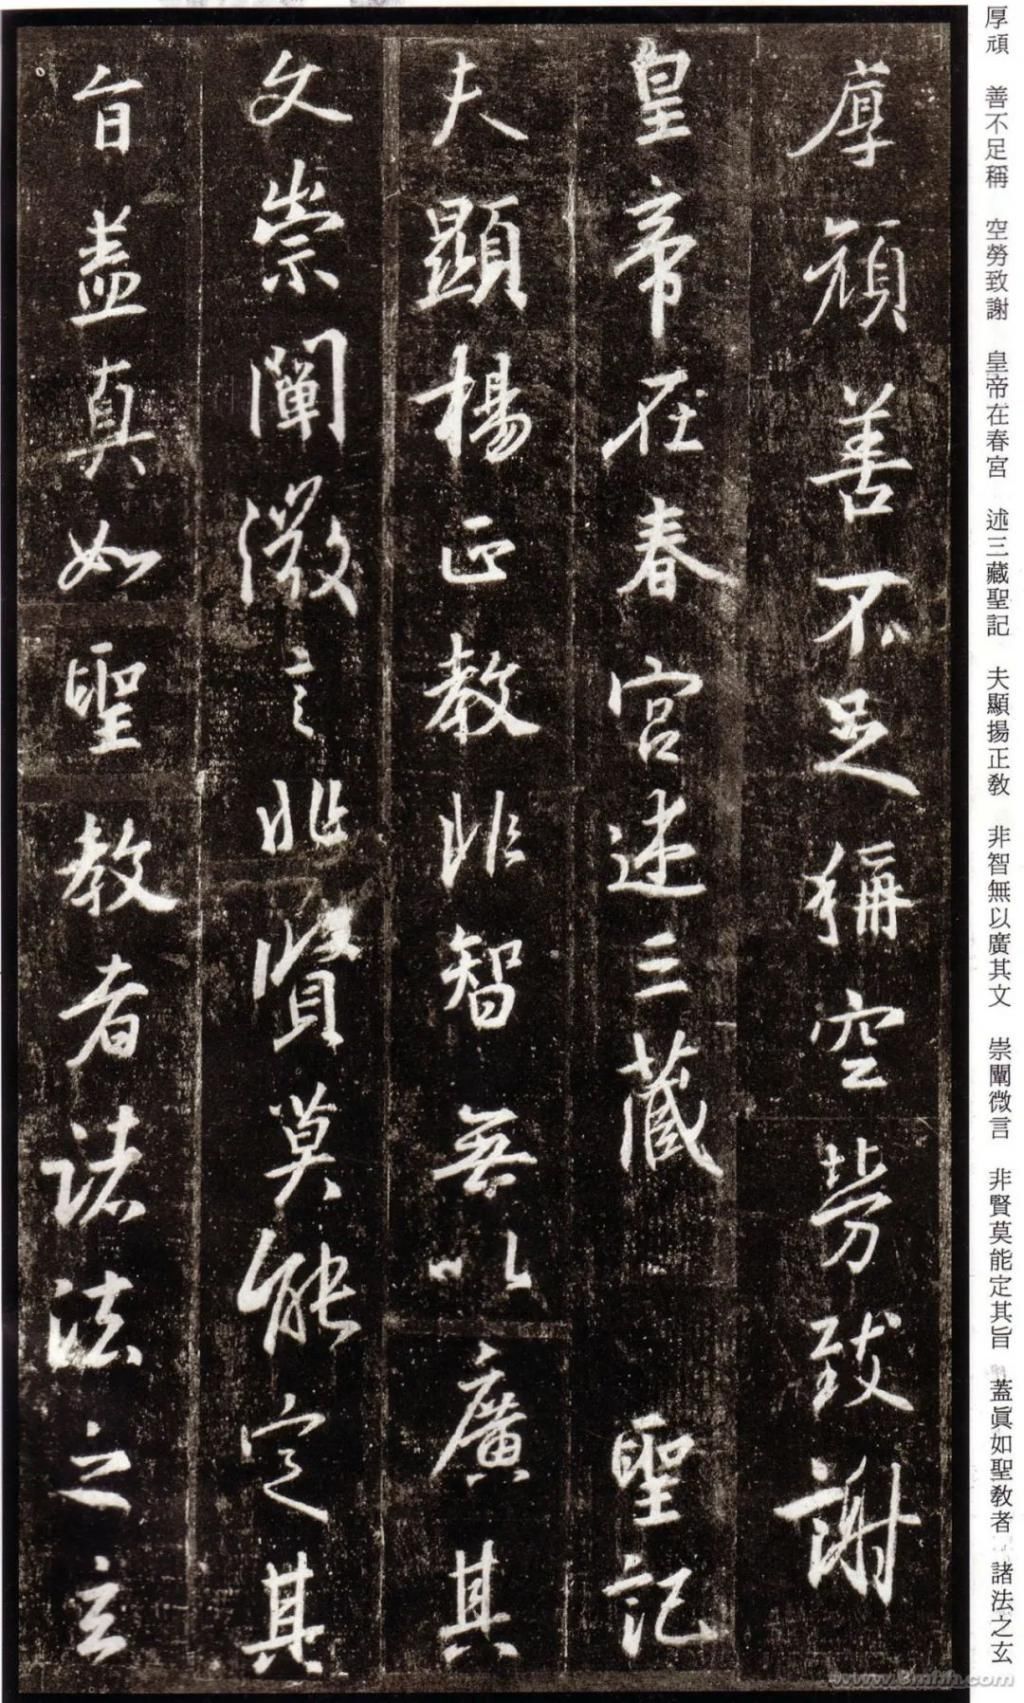 厚頑 善不足稱 空勞致謝 皇帝在春宮 述三藏聖記 夫顯揚正教 非智無以廣其文 崇闡微言 非賢莫能定其旨 蓋眞如聖教者 諸法之玄
厚頑善不足稱空勞致謝
皇帝在春宮述三藏 聖記
夫顯楊正教非智無以廣其
文崇闡微言非賢莫能定其
旨蓋真如聖教者諸法之玄